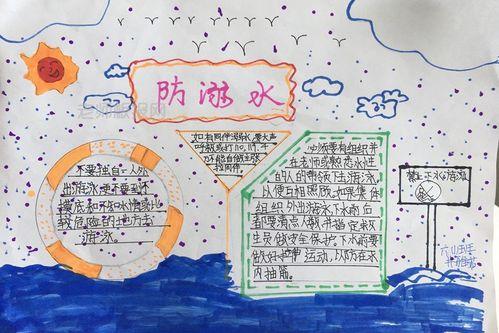 防溺水
如有同伴溺水,要大声
呼救或打110,119,千
万不能自做主张
拉同伴
不要独自一人外
出游泳,更不要到不
摸底和不知水情或比
较危险的地方去
游泳。
必须要有组织并
在老师或熟悉水性
的人的带领下去游泳。
以便互相照顾。如果集体
组织外出游泳,下水前后
都要清点人数,并指定救
生员做安全保护。下水前要
做好热身运动,以防在水
内抽筋。
禁止下水游泳